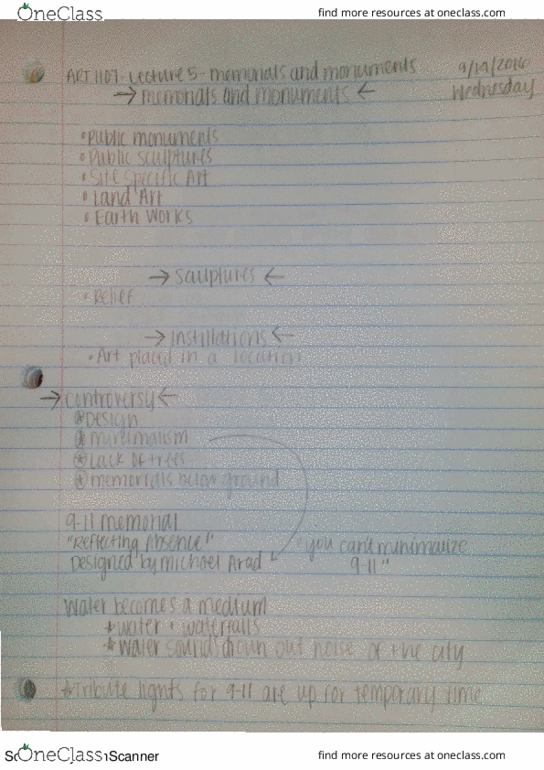 OneClass find more resources at oneclass.com
ART 1107 - Lecture 5 - memorials and monuments 9/14/2016
→ memorials and monuments ← Wednesday
• Public monuments
• Public sculptures
• Site Specific Art
• Land Art
• Earth Works
→ Sculptures ←
• Relief
→ Instillations ←
• Art placed in a location
→ controversy ←
Design
minimalism
Lack of trees
memorials below ground
9-11 memorial
"Reflecting Absence" "you can't minimalize
Designed by Michael Arad 9-11"
Water becomes a medium
* water + waterfalls
* water sounds drown out noise of the city
* Tribute lights for 9-11 are up for temporary time
OneClass Scanner find more resources at oneclass.com